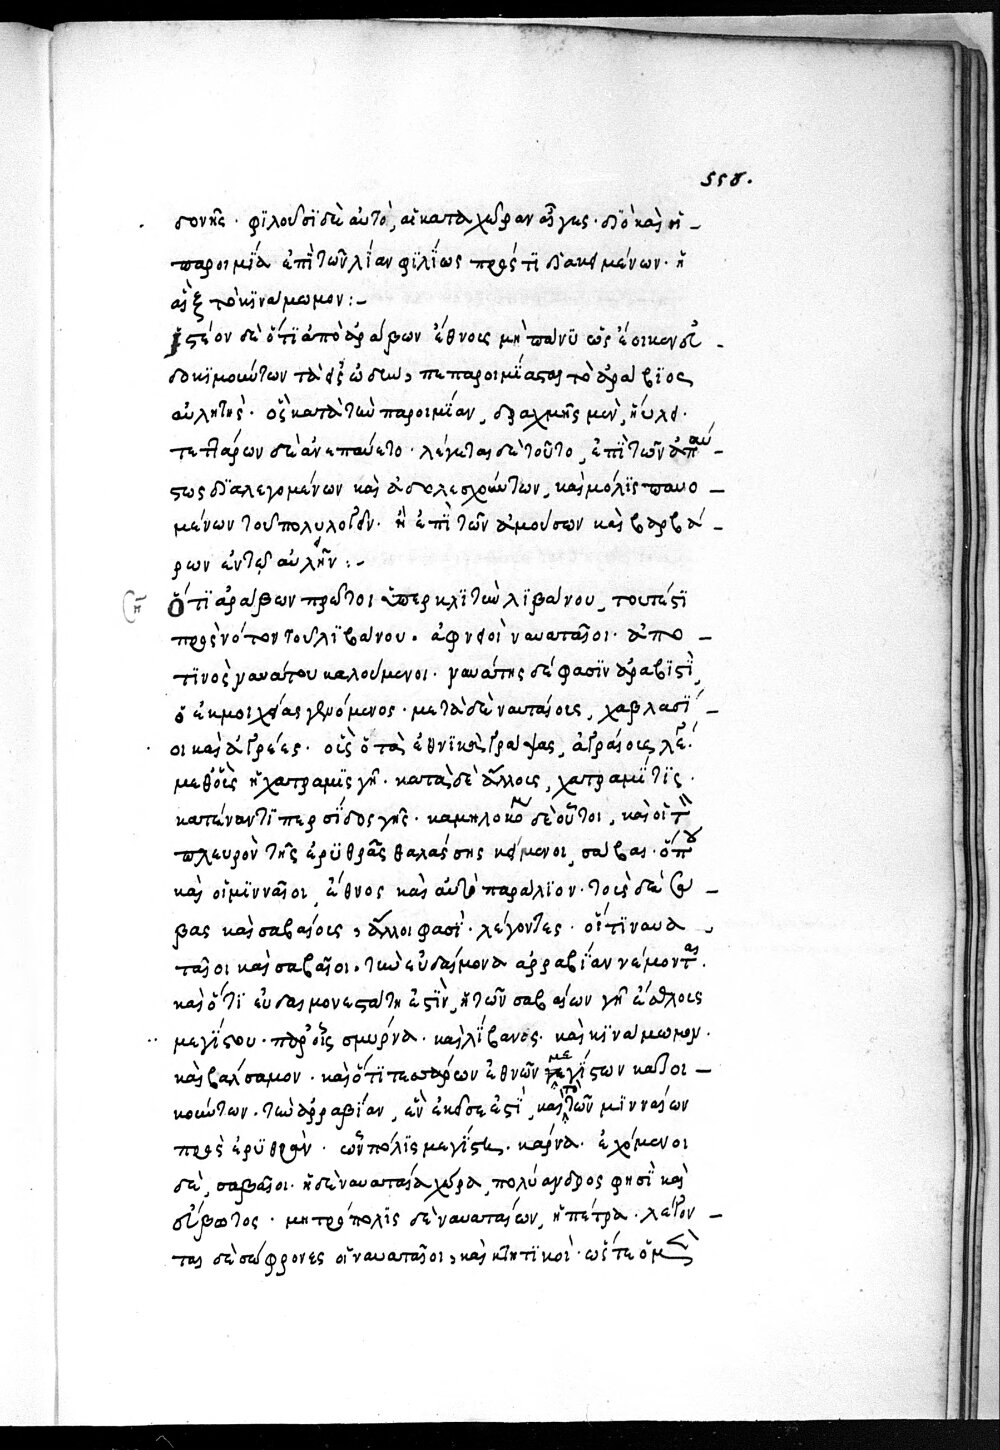 558.
δονῆς· φιλοῦσι δὲ αὐτὸ, αἱ κατὰ χώραν αἶγες· διὸ καὶ ἡ
παροιμία ἐπὶ τῶν λίαν φιλίως πρός τι διακειμένων· ἡ
αἲξ τὸ κινάμωμον:-
Ἰστέον δὲ ὅτι ἀπὸ ἀράβων ἔθνους μὴ πάνυ ὡς ἔοικεν εὐ
δοκιμούντων τὰ ἐξ ᾠδῶν, πεπαροιμίασται τὸ ἀράβιος
αὐλητής· ὃς κατὰ τὴν παροιμίαν, δραχμῆς μὲν, ηὔλει·
τεττάρων δὲ ἀνεπαύετο· λέγεται δὲ τοῦτο, ἐπὶ τῶν ἀπαύ
στως διαλεγομένων καὶ ἀδολεσχούντων, καὶ μόλις παυο
μένων τοῦ πολυλογεῖν· ἢ ἐπὶ τῶν ἀμούσων καὶ βαρβά
ρων ἐν τῷ αὐλεῖν:-
Ὅτι ἀράβων πρῶτοι ὑπερκλιτῶν λιβάνου, τουτέστι
πρὸς νότον τοῦ λιβάνου· ἀφνειοὶ ναυαταῖοι· ἀπό
τινος ναυάτου καλούμενοι· ναυάτης δέ φασιν ἀραβιστὶ,
ὁ ἐκ μοιχείας γενόμενος· μετὰ δὲ ναυταίους, χαβλασί
οι καὶ ἀγρέες· οὓς ὁ τὰ ἐθνικὰ γράψας, ἀγραίους λέγει·
μεθ' οὓς ἡ χατραμὶς γῆ· κατὰ δὲ ἄλλους, χατραμίτις·
κατέναντι περσίδος γῆς· καμηλοκόμοι δὲ οὗτοι, καὶ οἱ τὴν
πλευρὸν τῆς ἐρυθρᾶς θαλάσσης κείμενοι, σάβαι· ὅπου
καὶ οἱ μινναῖοι, ἔθνος καὶ αὐτὸ παράλιον· τοὺς δὲ σά
βας καὶ σαβαίους, ἄλλοι φασὶ· λέγοντες· ὅτι ναυα
ταῖοι καὶ σαβαῖοι, τὴν εὐδαίμονα ἀρραβίαν νέμονται·
καὶ ὅτι εὐδαιμονεστάτη ἐστὶν, ἡ τῶν σαβαίων γῆ ἔθνους
μεγίστου· παρ' οἷς σμύρνα· καὶ λίβανος· καὶ κινάμωμον·
καὶ βάλσαμον· καὶ ὅτι τεσσάρων ἐθνῶν μεγίστων κατοι
κούντων· τὴν ἀρραβίαν, ἓν ἐκεῖσε ἐστὶ, καὶ τὸ τῶν μινναίων
πρὸς ἐρυθρὰν· ὧν πόλις μεγίστη· κάρνα· ἐχόμενοι
δὲ, σαβαῖοι· ἡ δὲ ναυαταία χώρα, πολύανδρος φησὶ καὶ
εὔβοτος· μητρόπολις δὲ ναυαταίων, ἡ πέτρα· λέγον
ται δὲ σώφρονες οἱ ναυαταῖοι, καὶ κτητικοὶ· ὥστε ὁ μὲν